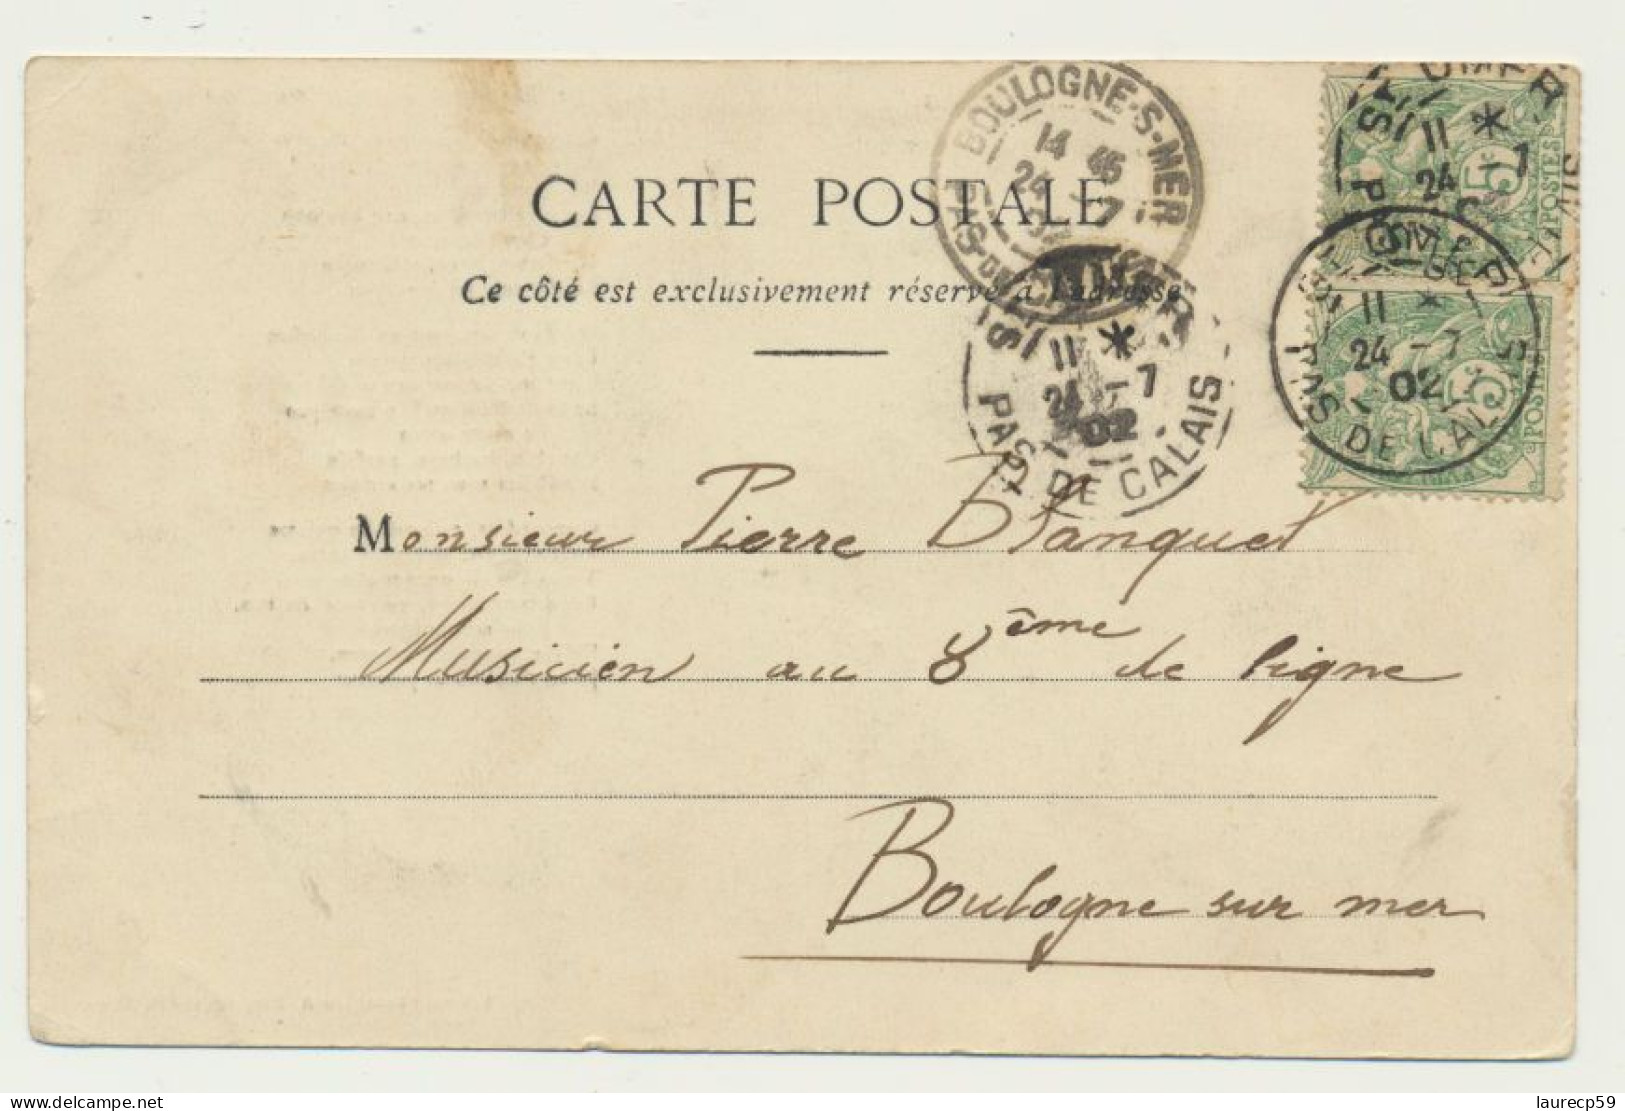 BOULOGNE-S-MER
14 45
24 -7
PAS-DE
CARTE POSTALE
Ce côté est exclusivement réservé à l'adresse
11 *
24 -7
02
PAS DE CALAIS
11 *
24 -7
5
POSTES
11 *
24 -7
02
PAS DE CALAIS
5
Monsieur Pierre Blanquet
Musicien au 8ème de ligne
Boulogne sur mer
delcampe.net
laurecp59